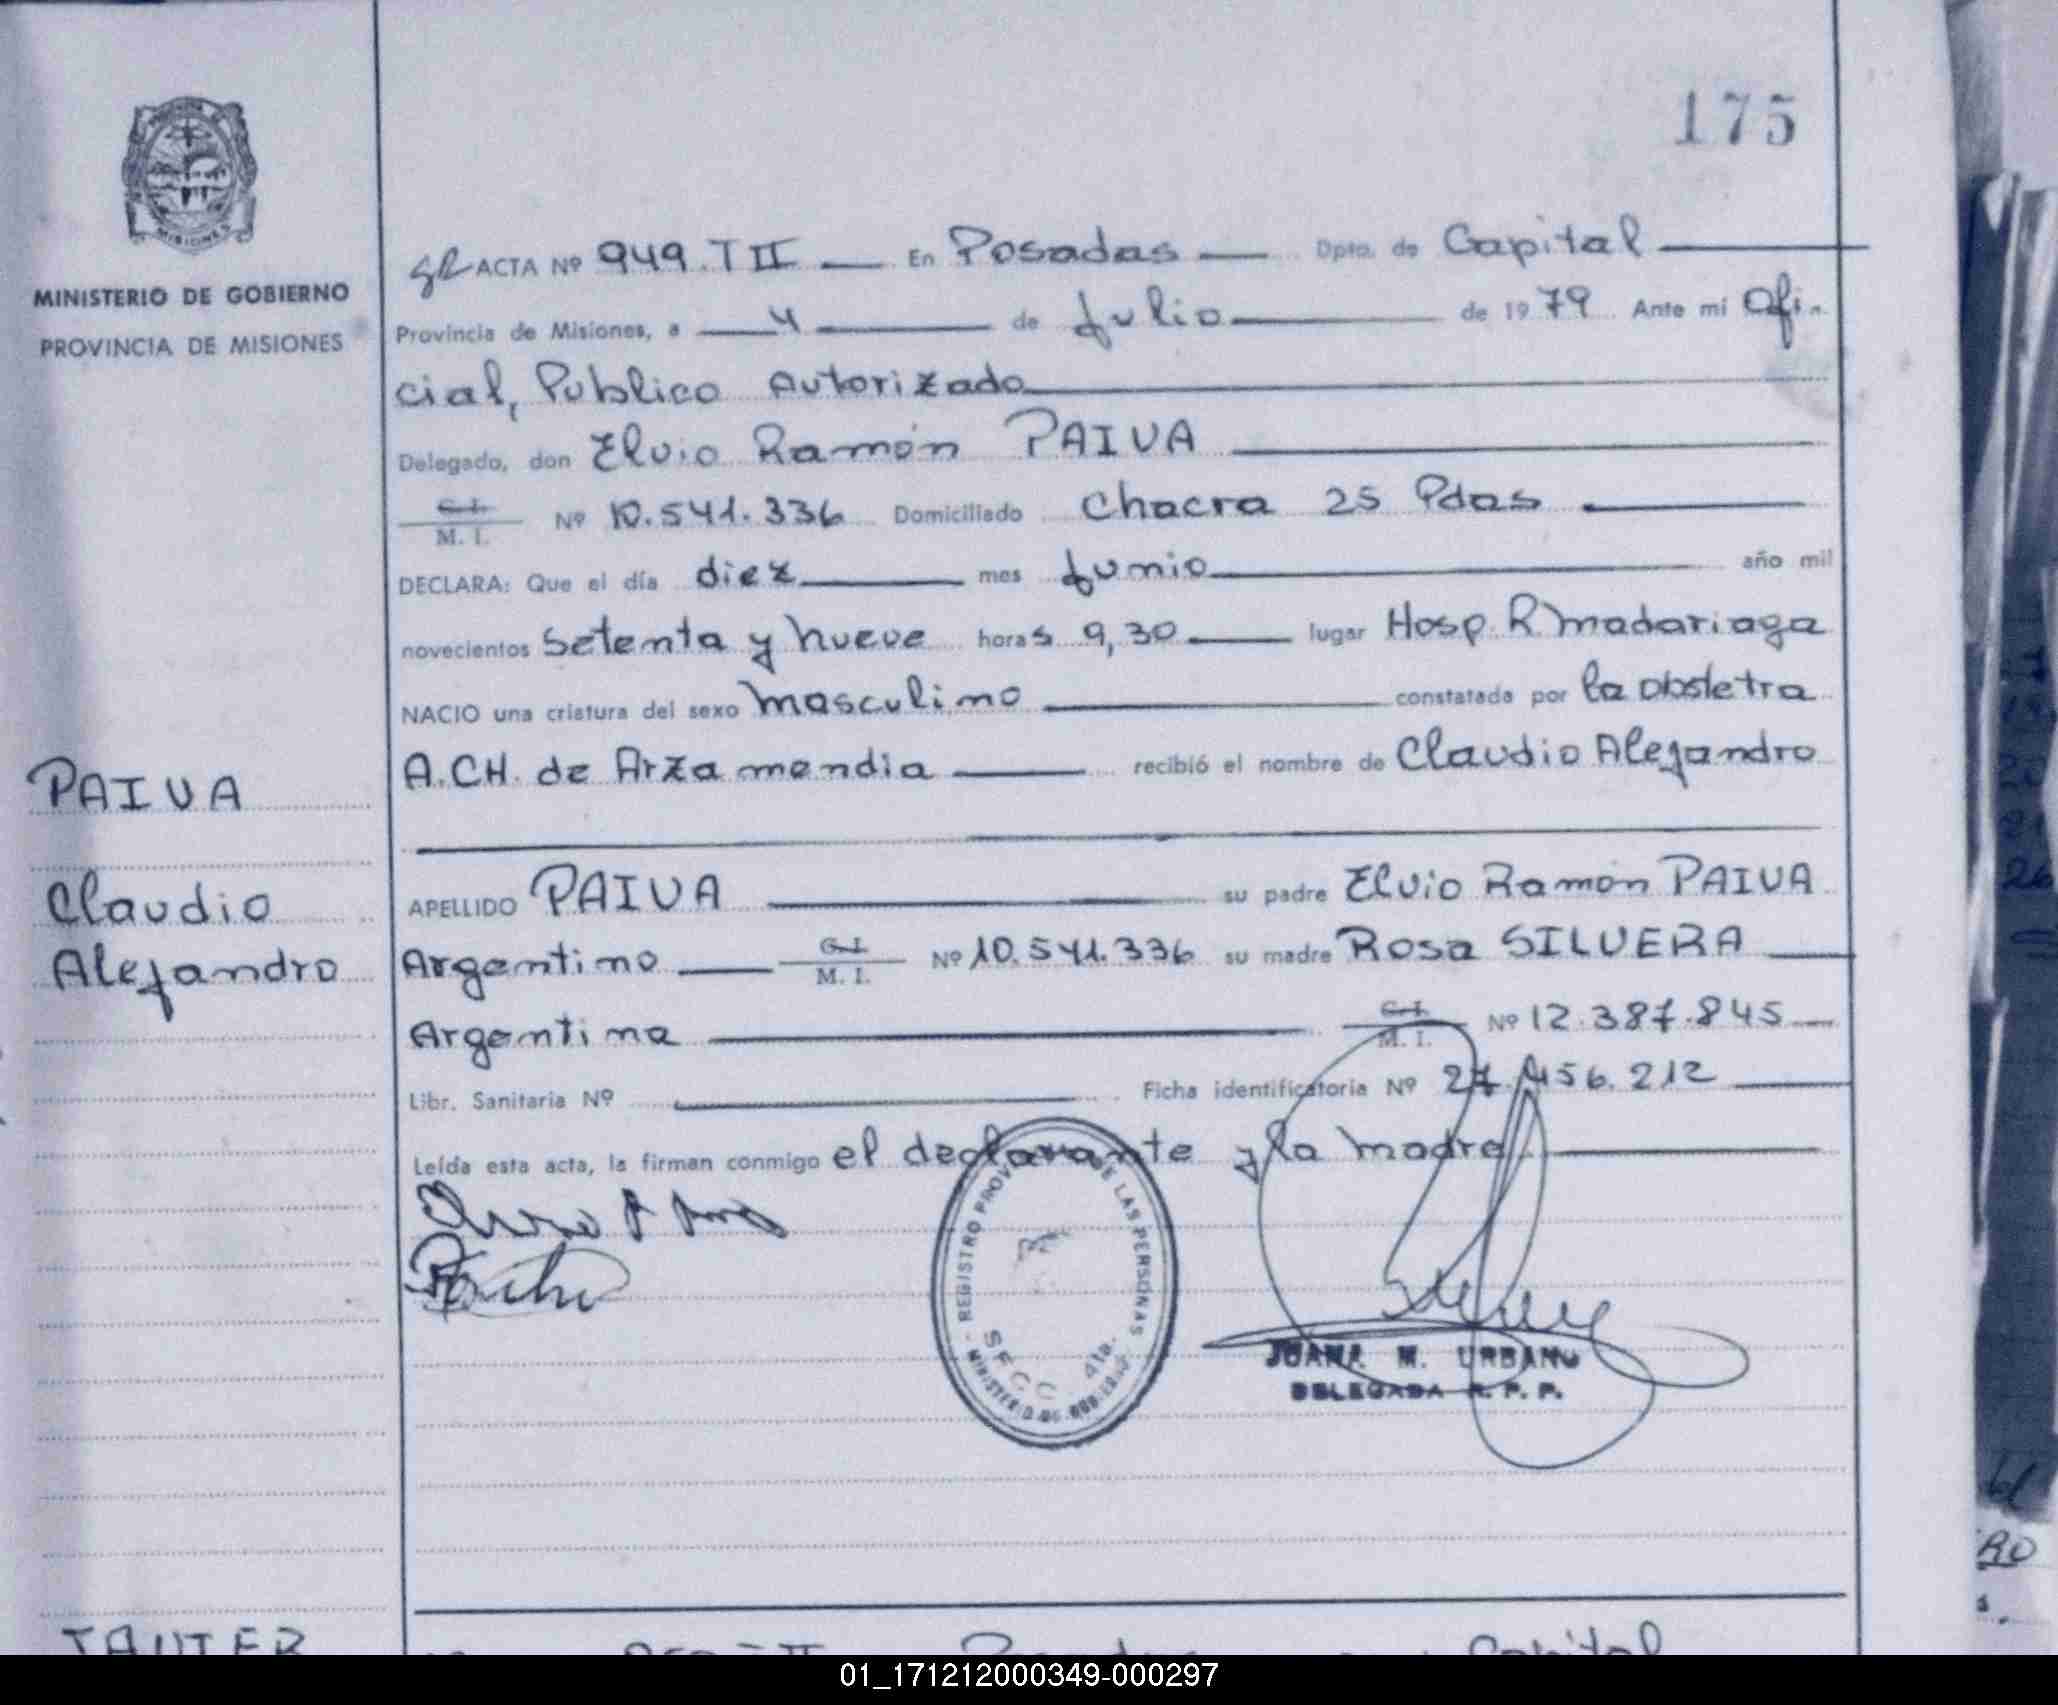 175
MINISTERIO DE GOBIERNO
PROVINCIA DE MISIONES
ACTA Nº 949. T II — En Posadas — Dpto. de Capital —
Provincia de Misiones, a — 4 — de Julio — de 1979 Ante mi Ofi-
cial, Publico Autorizado —
Delegado, don Elvio Ramón PAIVA —
C.I.
M. I. Nº 10.541.336 Domiciliado Chacra 25 Pdas —
DECLARA: Que el día diez — mes Junio — año mil
novecientos setenta y nueve horas 9,30 — lugar Hosp. R. Madariaga
NACIO una criatura del sexo masculino — constatada por la obstetra
A.CH. de Arzamendia — recibió el nombre de Claudio Alejandro
PAIVA
Claudio
Alejandro
APELLIDO PAIVA — su padre Elvio Ramón PAIVA
Argentino — C.I. M. I. Nº 10.541.336 su madre Rosa SILVERA —
Argentina — C.I. M. I. Nº 12.387.845 —
Libr. Sanitaria Nº — Ficha identificatoria Nº 27.456.212 —
Leída esta acta, la firman conmigo el declarante y la madre —
REGISTRO PROV DE LAS PERSONAS
SECC. 4ta.
MINISTERIO DE GOBIERNO
JUANA M. URBANO
DELEGADA R. P. P.
JAVIER
Posadas Capital
01_171212000349-000297